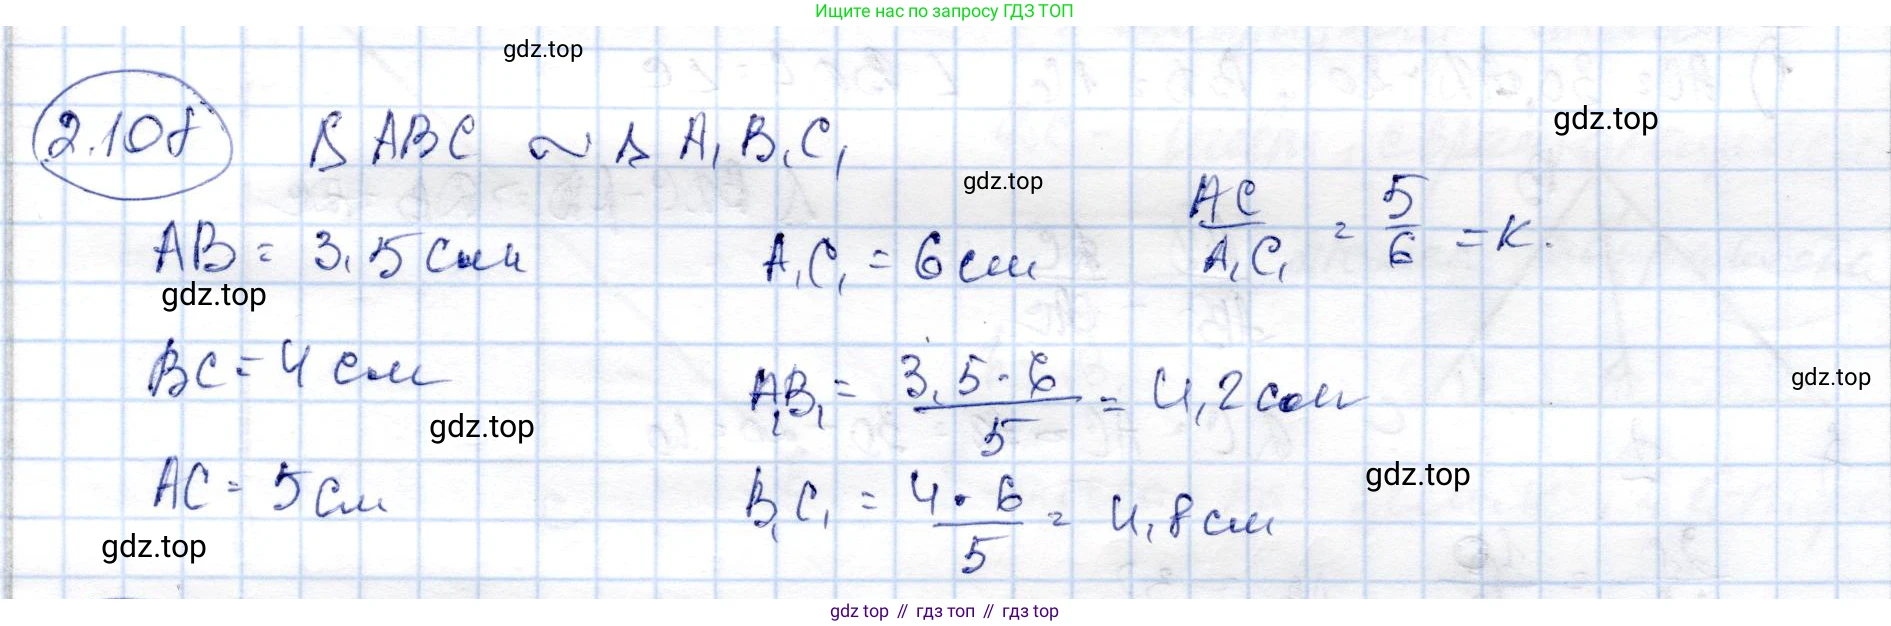 Ищите нас по запросу ГДЗ ТОП
gdz.top
2.108 Δ ABC ∼ Δ A₁B₁C₁
gdz.top
gdz.top
AB = 3,5 см A₁C₁ = 6 см AC/A₁C₁ = 5/6 = k.
gdz.top
BC = 4 см A₁B₁ = 3,5·6/5 = 4,2 см
gdz.top
gdz.top
AC = 5 см B₁C₁ = 4·6/5 = 4,8 см
gdz.top
gdz.top
gdz top // гдз топ // гдз top